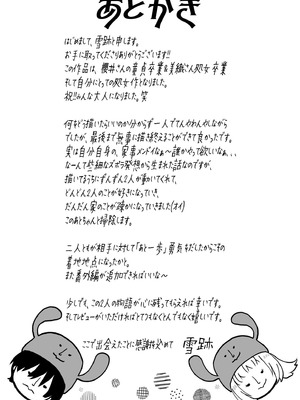 あとがき
はじめまして、雪跡と申します。
お手に取ってくださりありがとうございます!!
この作品は、櫻井さんの童貞卒業&美緒さん処女卒業
そして自分にとっての処女作となりました。
祝!!みんな大人になりました。笑
何をどう描いたらいいのか分からず一人でてんわわんわしながら
でしたが、最後まで無事に描き終えることができて良かったです。
実は自分自身の、家事メンドイなぁ〜誰かやって欲しいなぁ...
なーんて些細なズボラ発想から生まれた話なのですが、
描いてるうちにずんずん2人が動いてくれて、
どんどん2人のことが好きになっていき、
だんだん家のことが疎かになっていきました(オイ)
このあとちゃんと掃除します。
二人ともが相手に対して「あと一歩」勇気をだしたからこその
着地地点になったかと。
また番外編が追加できればいいな〜
少しでも、この2人の物語が心に残ってもらえれば幸いです。
そしてレビューがいただければとてつもなくとんでもなく嬉しいです。
ここで出会えたことに感謝を込めて 雪跡